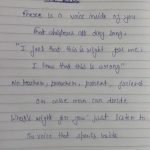 There is a voice inside of you
That whispers all day long,
"I feel that this is right for me,
I know that this is wrong"
No teacher, preacher, parent, friend
Or wise man can decide
What's right for you, just listen to
The voice that speaks inside